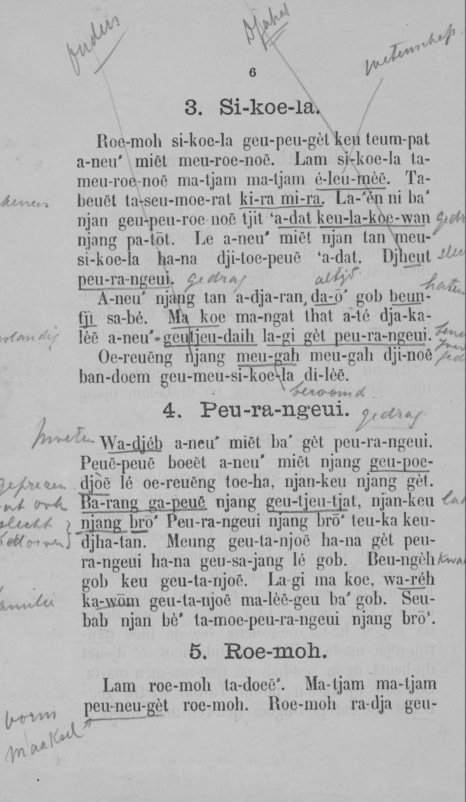 ouders
Djahat
wetenschap.
6
3. Si-koe-la.
Roe-moh si-koe-la geu-peu-gèt keu teum-pat
a-neuʼ miët meu-roe-noë. Lam si-koe-la ta-
meu-roe-noë ma-tjam ma-tjam é-leu-mèë. Ta-
beuët ta-seu-moe-rat ki-ra mi-ra. La-ʻén ni baʼ
njan geu-peu-roe-noë tjit ʻa-dat keu-la-koe-wan
njang pa-tōt. Le a-neuʼ miët njan tan meu-
si-koe-la ha-na dji-toe-peuë ʻa-dat. Djheut
peu-ra-ngeui. gedrag altijd
A-neuʼ njang tan a-dja-ran, da-ōʼ gob beun-
tji sa-bé. Ma koe ma-ngat that a-té dja-ka-
lèë a-neuʼ geutjeu-daih la-gi gèt peu-ra-ngeui.
Oe-reuëng njang meu-gah meu-gah dji-noë
ban-doem geu-meu-si-koe-la di-lèë.
beroemd
4. Peu-ra-ngeui. gedrag
moeten Wa-djéb a-neuʼ miët baʼ gèt peu-ra-ngeui.
Peuë-peuë boeët a-neuʼ miët njang geu-poe-
geprezen djoë lé oe-reuëng toe-ha, njan-keu njang gèt.
wat ook Ba-rang ga-peuë njang geu-tjeu-tjat, njan-keu
slecht njang brōʼ Peu-ra-ngeui njang brōʼ teu-ka keu-
djha-tan. Meung geu-ta-njoë ha-na gèt peu-
ra-ngeui ha-na geu-sa-jang lé gob. Beu-ngèh
gob keu geu-ta-njoë. La-gi ma koe, wa-réh
familie ka-wōm geu-ta-njoë ma-lèë-geu baʼ gob. Seu-
bab njan bèʼ ta-moe-peu-ra-ngeui njang brōʼ.
5. Roe-moh.
Lam roe-moh ta-doeëʼ. Ma-tjam ma-tjam
peu-neu-gèt roe-moh. Roe-moh ra-dja geu-
vorm
maaksel